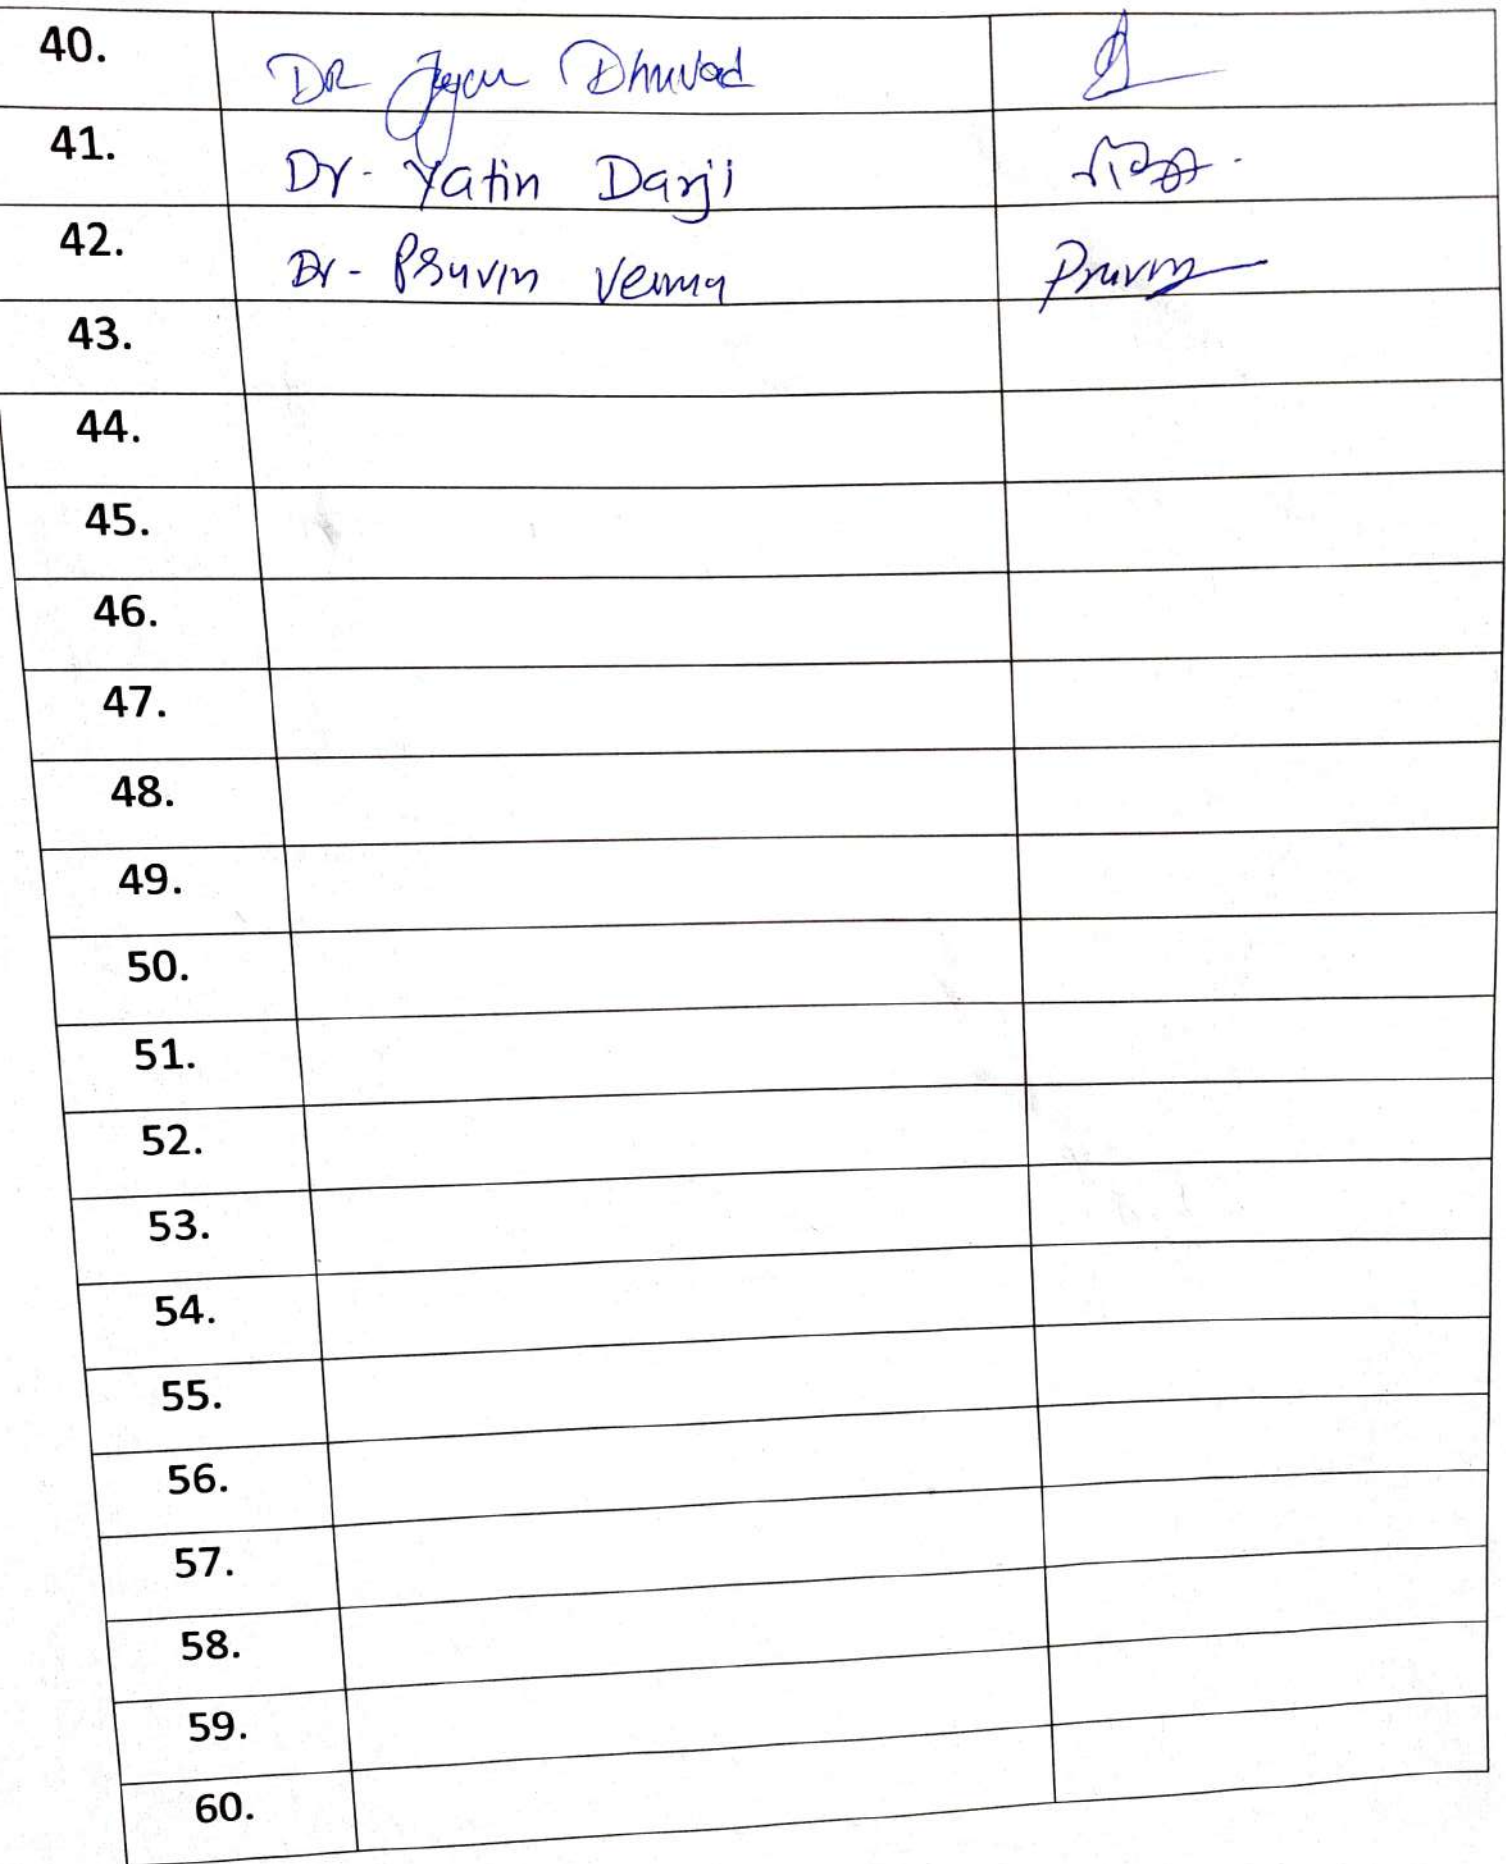 40. DR Dhuvad
41. Dr. Yatin Darji
42. Dr - Pruvin Verma Pruvin
43.
44.
45.
46.
47.
48.
49.
50.
51.
52.
53.
54.
55.
56.
57.
58.
59.
60.